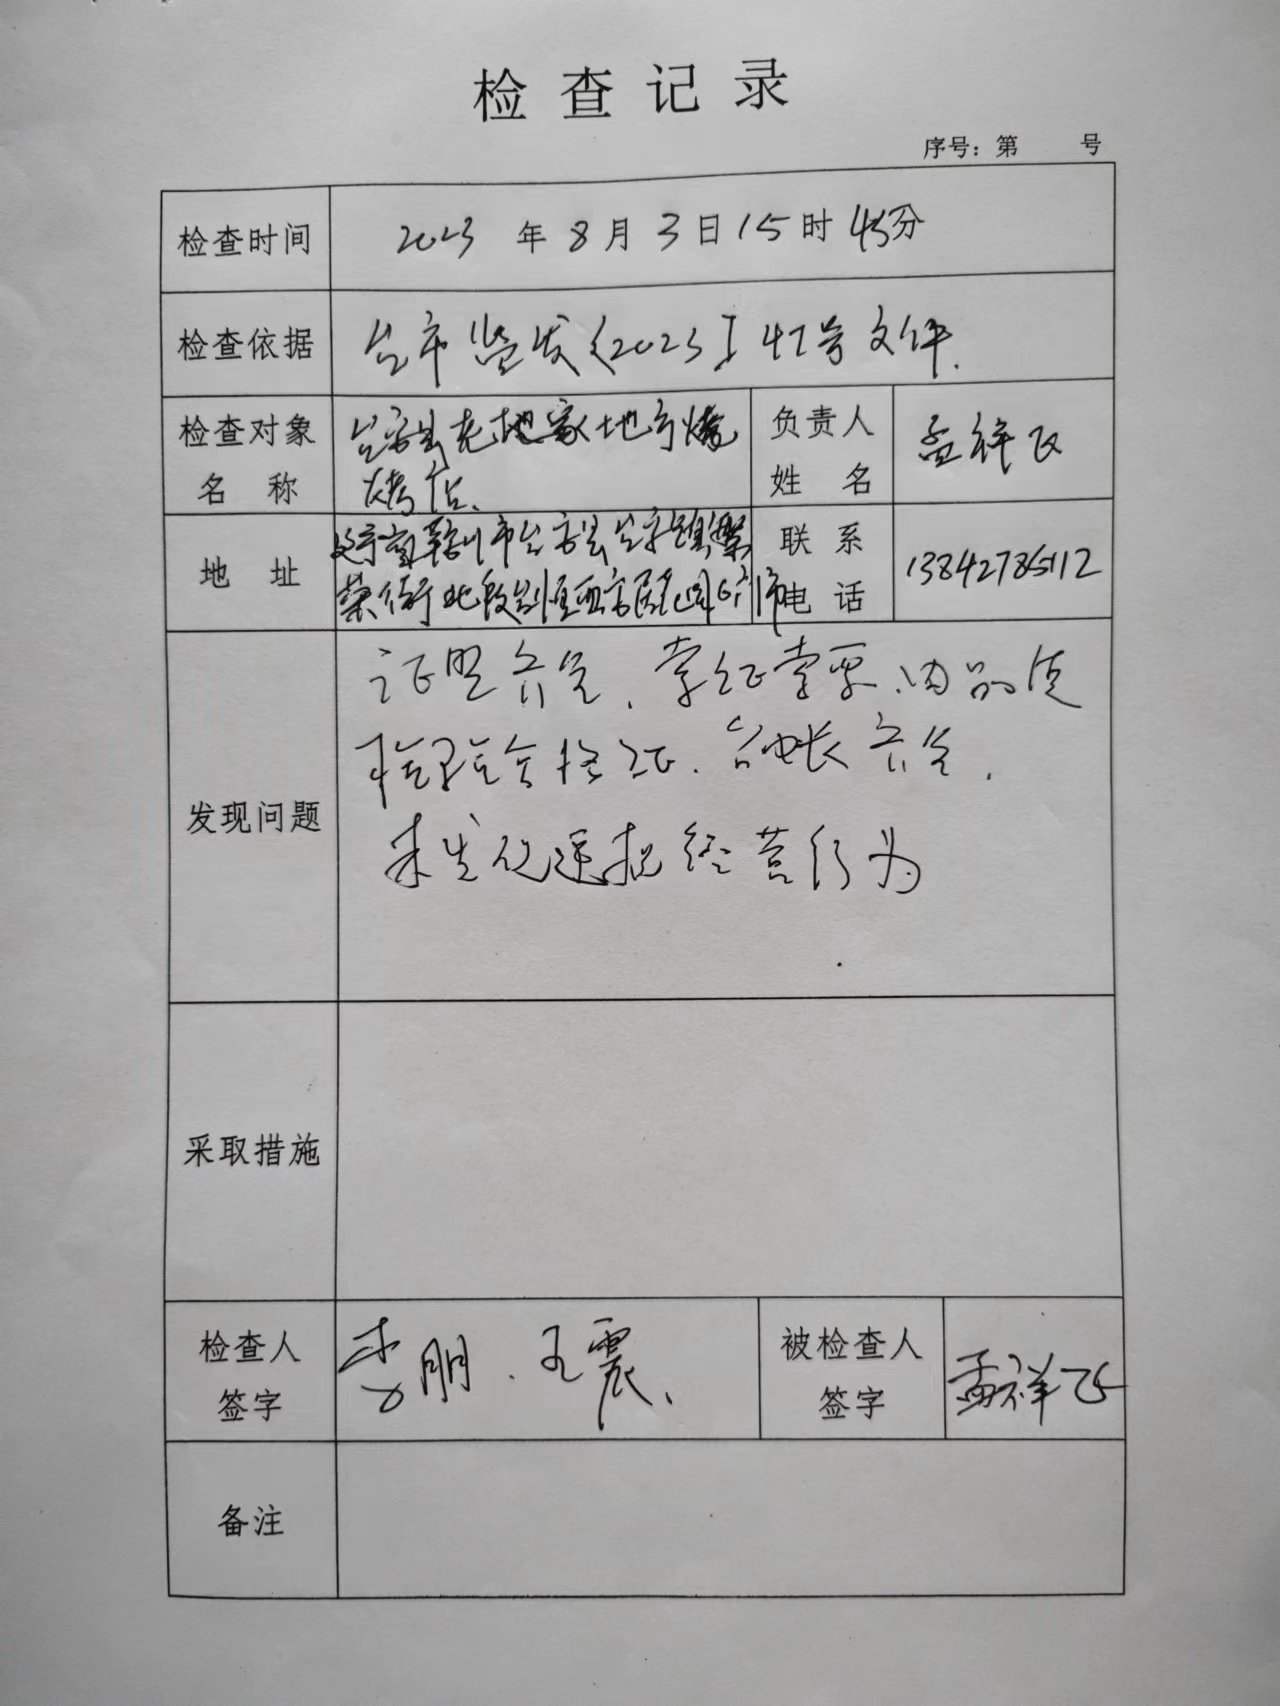 检查记录
序号：第 号
检查时间 2023年8月3日15时45分
检查依据 台市监发〈2023〕47号文件.
检查对象 台安县老地家地方烧
名称 烤店、
负责人 孟祥飞
姓名
辽宁省鞍山市台安县台安镇繁
地址
荣街北段
联系 13842785112
电话
发现问题
证照齐全、索证索票、肉品质
检验合格证、台账齐全,
未发现违规经营行为
采取措施
检查人 李朋、王震、
签字
被检查人 孟祥飞
签字
备注